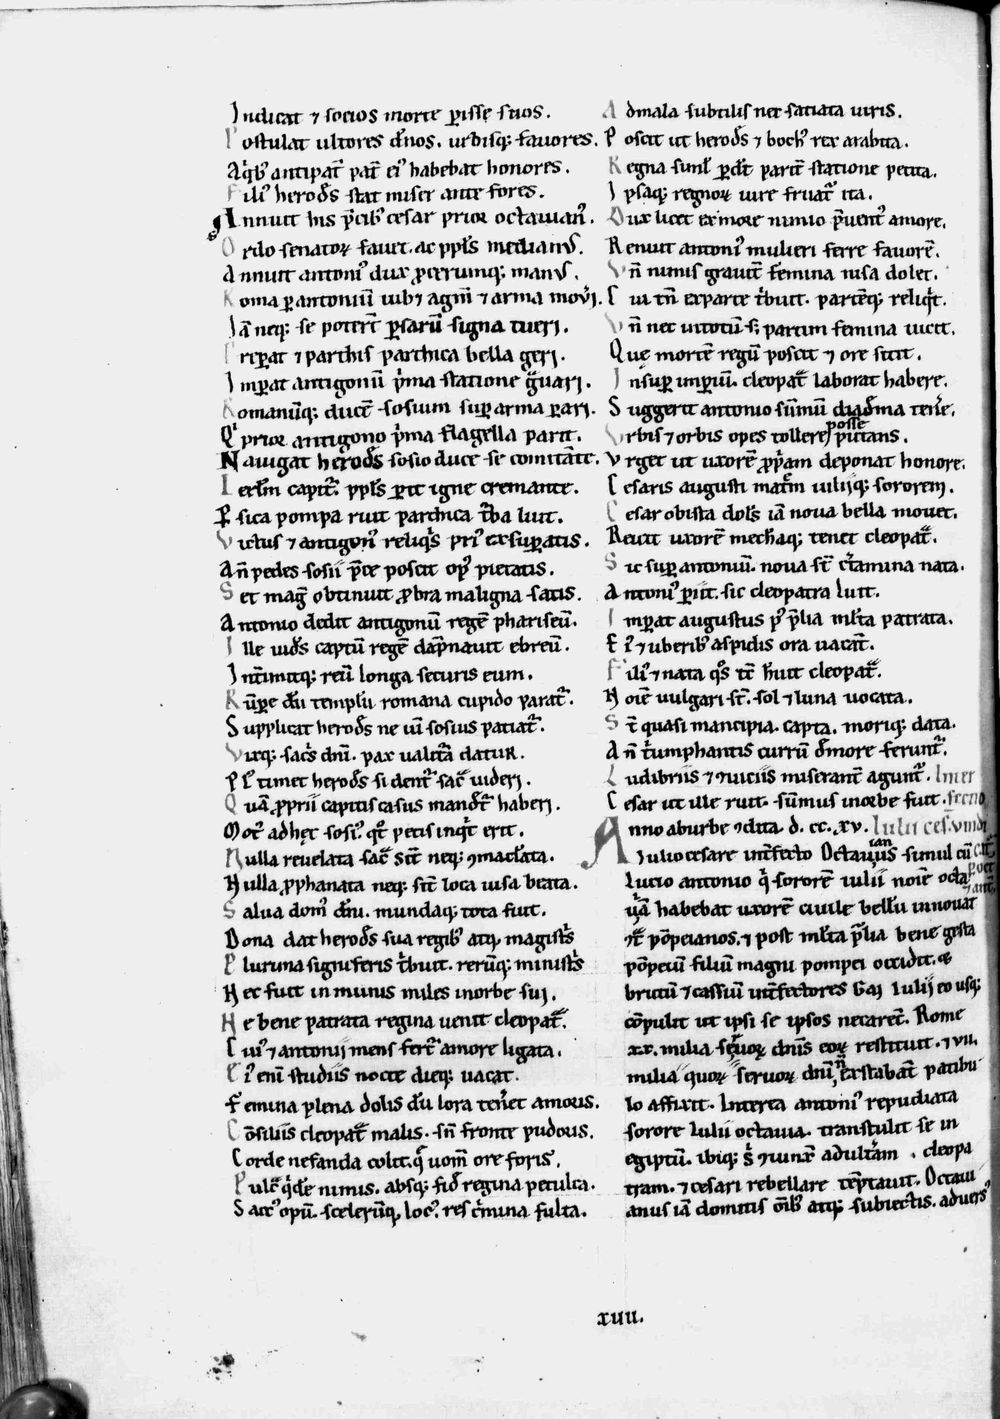 Indicat ⁊ socios morte ꝑisse suos.
Postulat ultores dn̄os. urbisq; fauores.
Aqͥbꝰ antipat᷑ pat᷑ eiꝰ habebat honores.
Filiꝰ herod̄s stat miser ante fores.
Annuit his p̄cibꝰ cesar prior octauianꝰ.
Ordo senatoꝝ fauet. ac ppl̄s medianꝰ.
Annuit antoniꝰ dux ꝓcerumq; manꝰ.
Roma ꝑ antoniū iub&
Iā neq; se poterit ꝑsarū signa tueri.
Eripat ⁊ parthis parthica bella geri.
Imꝑat antigonū pͥma statione gͣuari.
Romanūq; ducē sosium suꝑ arma ꝑari.
Qͥ prior antigono pͥma flagella parit.
Nauigat herod̄s sosio duce se comitāte.
Ierl̄m capit᷑. ppl̄s ꝑit igne cremante.
Ꝑsica pompa ruit parthica t᷑ba luit.
Victus ⁊ antigonꝰ reliqͥs priꝰ exsuꝑatis.
An̄ pedes sosii p̄ce poscit opꝰ pietatis.
Set magͥ obtinuit ꝓbra maligna satis.
Antonio dedit antigonū regē phariseū.
Ille uid̄s captū regē dāpnauit ebreū.
Int᷑imitq; reū longa securis eum.
Rūꝑe dū templū romana cupido parat᷑.
Supplicat herod̄s ne uī sosius patiat᷑.
Virq; sacͥs dn̄i. pax ualit̄a datur.
Pl᷑ timet herod̄s si dent᷑ sac̄ uideri.
Quā ꝓprii capitis casus mand&᷑ haberi.
Mot᷑ adhęc sosiꝰ. qd̄ petis inqͥt erit.
Nulla reuelata sac̄ sūt neq; ꝯmac̄lata.
Nulla ꝓphanata neq; sūt loca uisa beata.
Salua domꝰ dn̄i. mundaq; tota fuit.
Dona dat herod̄s sua regibꝰ atq; magist᷑s
Plurima signiferis t᷑buit. rerūq; minist᷑s
Hec fuit in munis miles inorbe sui.
He bene patrata regina uenit cleopat͛.
Cuiꝰ ⁊ antonii mens fert᷑ amore ligata.
Eiꝰ enī studiis nocte dieq; uacat.
Femina plena dolis dū lora ten&᷑ amoris.
Cōsiliis cleopat͛ malis. sn̄ fronte pudoris.
Corde nefanda colit. qͣ uom̄ ore foris.
Pulc᷑ qͥde nimis. absq; fid̄ regina petulca.
Saccꝰ opū. scelerūq; locꝰ. res cͥmina fulta.
Admala subtilis nec satiata uiris.
Poscit ut herod̄s ⁊ bochꝰ rex arabita.
Regna simł ꝑd̄t parit᷑ statione petita.
Ipsaq; regnoꝝ iure fruat᷑ ita.
Dux licet exmore nimio p̄uentꝰ amore.
Renuit antoniꝰ mulieri ferre fauorē.
Vn̄ nimis grauit᷑ femina uisa dolet.
Cui tn̄ exparte t᷑buit. partēq; reliqͥt.
Vn̄ nec uitotū s; partim femina uicit.
Quę mortē regū poscit ⁊ ore sitit.
Insuꝑ imꝑiū. cleopat͛ laborat habere.
Suggerit antonio sūmū diad̄ma ten&᷑e.
posse
Vrbis ⁊ orbis opes tollere putans.
Vrget ut uxorē ꝓpͥam deponat honore.
Cesaris augusti mat᷑m iuliiq; sororem.
Cesar obista dol&s iā noua bella mouet.
Reicit uxorē mechaq; tenet cleopat͛.
Sic suꝑ antoniū. noua st̄ c᷑tamina nata.
Antoniꝰ ꝑiit. sic cleopatra luit.
Imꝑat augustus pꝰ p̄lia ml̄ta patrata.
Eiꝰ ⁊ uberibꝰ aspidis ora uacāt.
Filiꝰ ⁊ nata qͦs t̄c h̄uit cleopat͛.
Noīe uulgari st̄. sol ⁊ luna uocata.
St̄ quasi mancipia. capta. moriq; data.
An̄ tͥumphantis currū d̄more ferunt᷑.
Ludibriis ⁊ uiciis miserant᷑ agunt᷑. Inter
Cesar ut ille ruit. sūmus inorbe fuit. fectio
Anno aburbe ꝯdita. d. cc. xv. Iulii ces. uindi
ian
A iulio cesare int᷑fecto Octauius simul cū
Lucio antonio qͥ sororē iulii noīe octa
uiā habebat uxorē ciuile bellū innouat
ꝯt̄ pōpeianos. ⁊ post ml̄ta p̄lia bene gesta
pōpeiū filium magni pompei occidit. &
brutū ⁊ cassiū int᷑fectores Gai Iulii eo usq;
cōpulit ut ipsi se ipsos necarent. Rome
xx. milia seruoꝝ dn̄is eoꝝ restituit. ⁊ vii.
milia quoꝝ seruoꝝ dn̄i n̄ exstabāt patibu
lo affixit. Interea antoniꝰ repudiata
sorore Iulii octauia. transtulit se in
egiptū. ibiq; s̄ ꝯiunx̄ adult᷑am. cleopa
tram. ⁊ cesari rebellare tēptauit. Octaui
anus iā domitis ōibꝰ atq; subiectis. aduersꝰ
xuii.